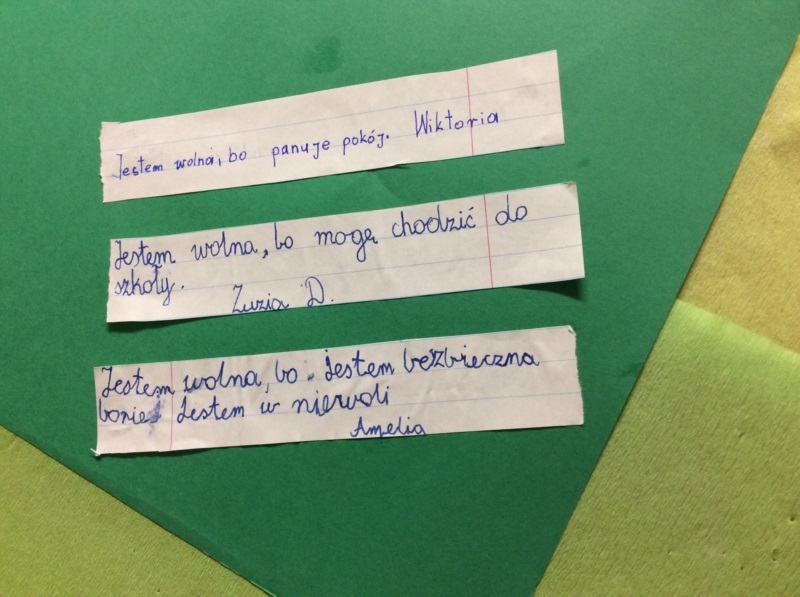 Jestem wolna, bo panuje pokój. Wiktoria
Jestem wolna, bo mogę chodzić do
szkoły.
Zuzia D.
Jestem wolna, bo jestem bezbieczna
bo nie Jestem w niewoli
Amelia